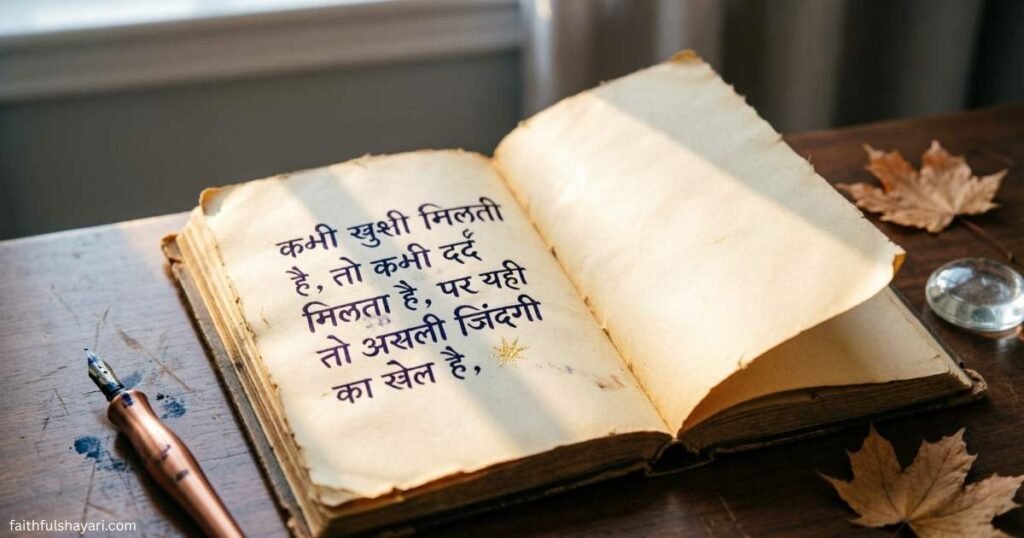 कभी खुशी मिलती
है, तो कभी दर्द
मिलता है, पर यही
तो असली जिंदगी
का खेल है,
faithfulshayari.com